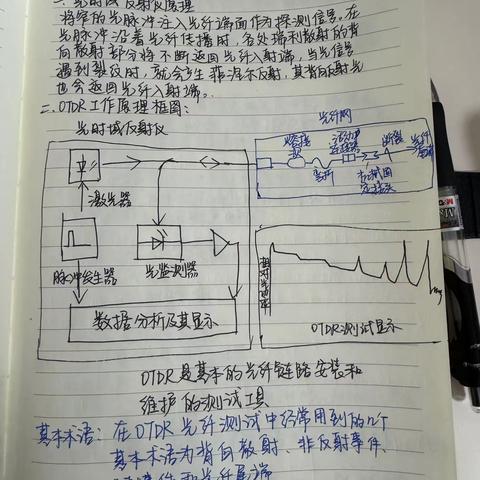 一、光时域反射仪原理
将窄的光脉冲注入光纤端面作为探测信号。在
光脉冲沿着光纤传播时，各处瑞利散射的背
向散射部分将不断返回光纤入射端，当光信号
遇到裂纹时，就会产生菲涅尔反射，其背向反射光
也会返回光纤入射端。
二、OTDR工作原理框图：
光时域反射仪
光纤网
熔接
活动
连接器
断裂
光纤
弯折
机械固
定接头
激光器
脉冲发生器
光监测器
数据分析及其显示
相对光功率
OTDR测试显示
OTDR是基本的光纤链路安装和
维护的测试工具
基本术语：在OTDR光纤测试中经常用到的几个
基本术语为背向散射、非反射事件、